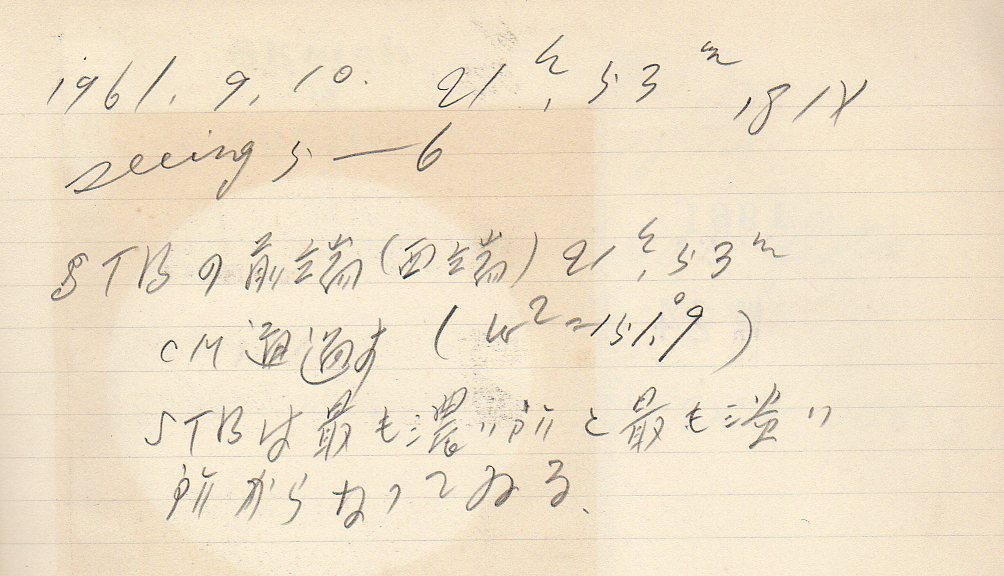 1961. 9. 10. 21h.53m, 181X
seeing 5—6
STBの前端(西端) 21h.53m
CM通過す (ω2=151.°9)
STBは最も濃い所と最も淡い
所からなってゐる.